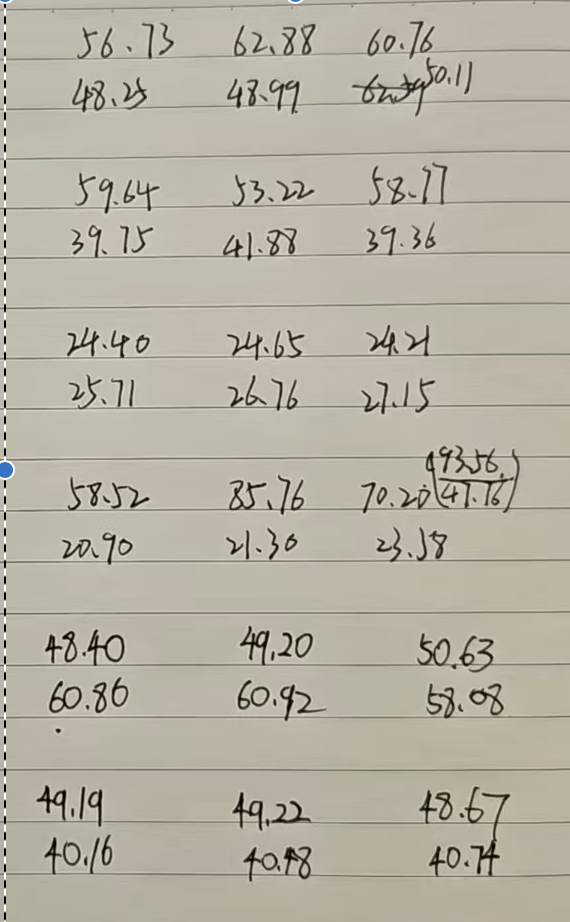 56.73 62.88 60.76
48.25 48.99 50.11
59.64 53.22 58.77
39.75 41.88 39.36
24.40 24.65 24.21
25.71 26.76 27.15
58.52 85.76 70.20 (93.56 / 47.76)
20.90 21.30 23.58
48.40 49.20 50.63
60.86 60.92 58.08
49.19 49.22 48.67
40.16 40.48 40.74